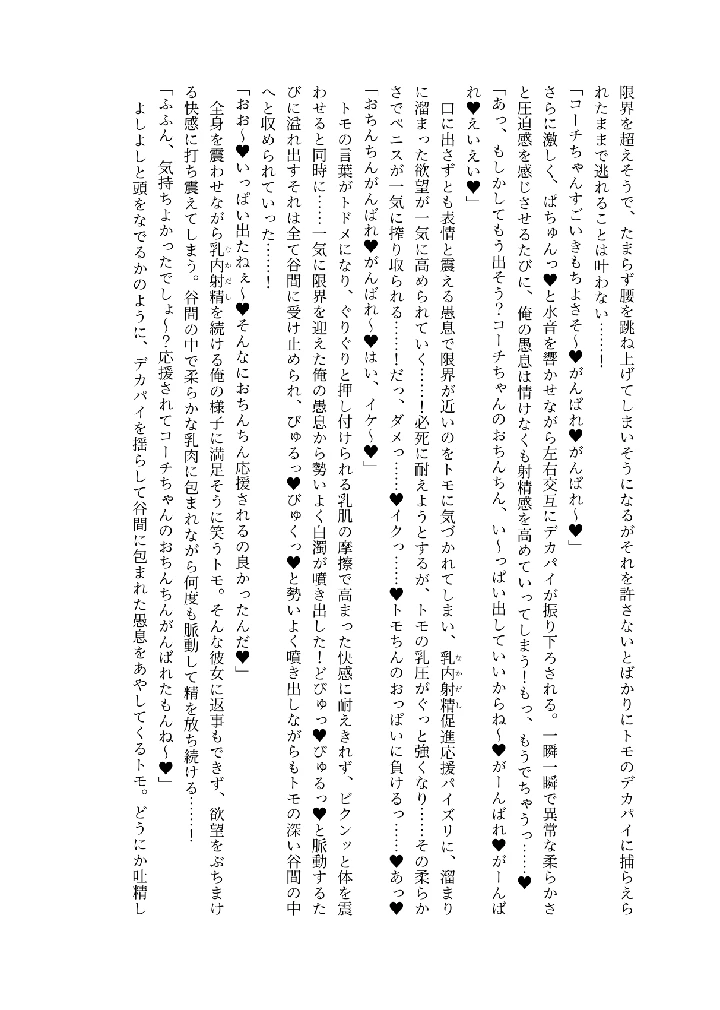 限界を超えそうで、たまらず腰を跳ね上げてしまいそうになるがそれを許さないとばかりにトモのデカパイに捕らえら
れたままで逃れることは叶わない……！
「コーチちゃんすごいきもちよさそ～♥がんばれ♥がんばれ～♥」
さらに激しく、ばちゅんっ♥と水音を響かせながら左右交互にデカパイが振り下ろされる。一瞬一瞬で異常な柔らかさ
と圧迫感を感じさせるたびに、俺の愚息は情けなくも射精感を高めていってしまう！もっ、もうでちゃうっ……♥
「あっ、もしかしてもう出そう？コーチちゃんのおちんちん、い～っぱい出していいからね～♥がーんばれ♥がーんば
れ♥えいえい♥」
口に出さずとも表情と震える愚息で限界が近いのをトモに気づかれてしまい、乳内射精促進応援パイズリに、溜まり
に溜まった欲望が一気に高められていく……！必死に耐えようとするが、トモの乳圧がぐっと強くなり……その柔らか
さでペニスが一気に搾り取られる……！だっ、ダメっ……♥イクっ……♥トモちんのおっぱいに負けるっ……♥あっ♥
「おちんちんがんばれ♥がんばれ～♥はい、イケ～♥」
トモの言葉がトドメになり、ぐりぐりと押し付けられる乳肌の摩擦で高まった快感に耐えきれず、ビクンッと体を震
わせると同時に……一気に限界を迎えた俺の愚息から勢いよく白濁が噴き出した！どびゅっ♥びゅるっ♥と脈動するた
びに溢れ出すそれは全て谷間に受け止められ、びゅるっ♥びゅくっ♥と勢いよく噴き出しながらもトモの深い谷間の中
へと収められていった……！
「おお～♥いっぱい出たねぇ～♥そんなにおちんちん応援されるの良かったんだ♥」
全身を震わせながら乳内射精を続ける俺の様子に満足そうに笑うトモ。そんな彼女に返事もできず、欲望をぶちまけ
る快感に打ち震えてしまう。谷間の中で柔らかな乳肉に包まれながら何度も脈動して精を放ち続ける……！
「ふふん、気持ちよかったでしょ～？応援されてコーチちゃんのおちんちんがんばれたもんね～♥」
よしよしと頭をなでるかのように、デカパイを揺らして谷間に包まれた愚息をあやしてくるトモ。どうにか吐精し